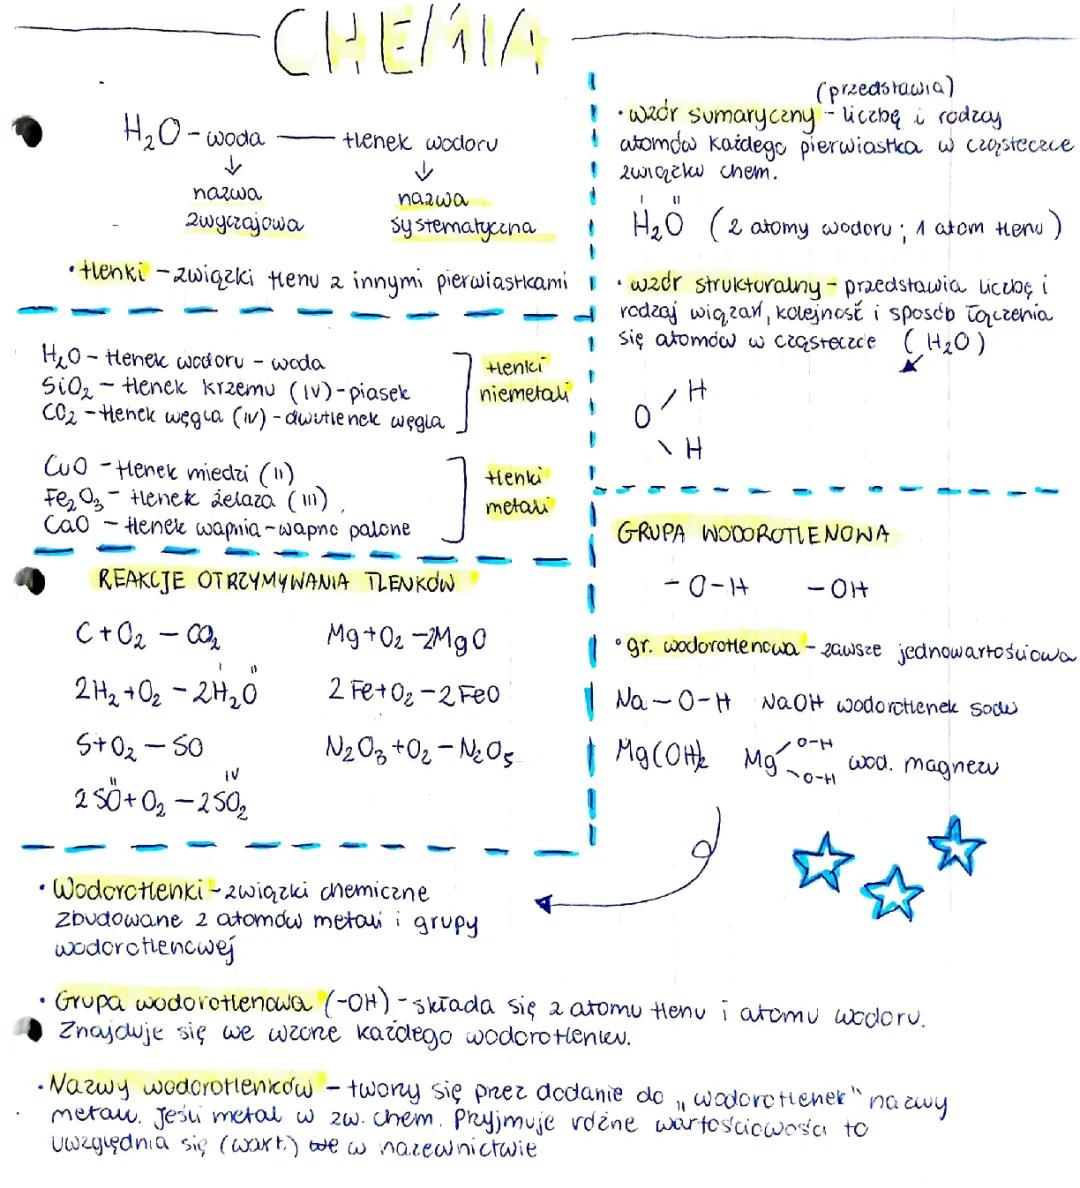 CHEMIA
H₂O - woda — tlenek wodoru
↓ ↓
nazwa zwyczajowa nazwa systematyczna
• tlenki - związki tlenu z innymi pierwiastkami
H₂O - tlenek wodoru - woda
SiO₂ - tlenek krzemu (IV) - piasek
CO₂ - tlenek węgla (IV) - dwutlenek węgla
tlenki
niemetali
CuO - tlenek miedzi (II)
Fe₂O₃ - tlenek żelaza (III)
CaO - tlenek wapnia - wapno palone
tlenki
metali
REAKCJE OTRZYMYWANIA TLENKÓW
C + O₂ — CO₂
2H₂ + O₂ - 2H₂ᴵOᴵᴵ
S + O₂ — SO
2SOᴵᴵ + O₂ — 2SᴵⱽO₂
Mg + O₂ - 2MgO
2Fe + O₂ - 2FeO
N₂O₃ + O₂ - N₂O₅
(przedstawia)
• wzór sumaryczny - liczbę i rodzaj
atomów każdego pierwiastka w cząsteczce
związku chem.
H₂ᴵOᴵᴵ (2 atomy wodoru; 1 atom tlenu)
• wzór strukturalny - przedstawia liczbę i
rodzaj wiązań, kolejność i sposób łączenia
się atomów w cząsteczce (H₂O)
H
O
H
GRUPA WODOROTLENOWA
-O-H -OH
• gr. wodorotlenowa - zawsze jednowartościowa
Na - O-H NaOH wodorotlenek sodu
Mg(OH)₂ Mg O-H O-H wod. magnezu
• Wodorotlenki - związki chemiczne
zbudowane z atomów metali i grupy
wodorotlenowej
• Grupa wodorotlenowa (-OH) - składa się z atomu tlenu i atomu wodoru.
Znajduje się we wzorze każdego wodorotlenku.
• Nazwy wodorotlenków - tworzy się przez dodanie do „wodorotlenek" nazwy
metalu. Jeśli metal w zw. chem. Przyjmuje różne wartościowości to
uwzględnia się (wart.) w nazewnictwie